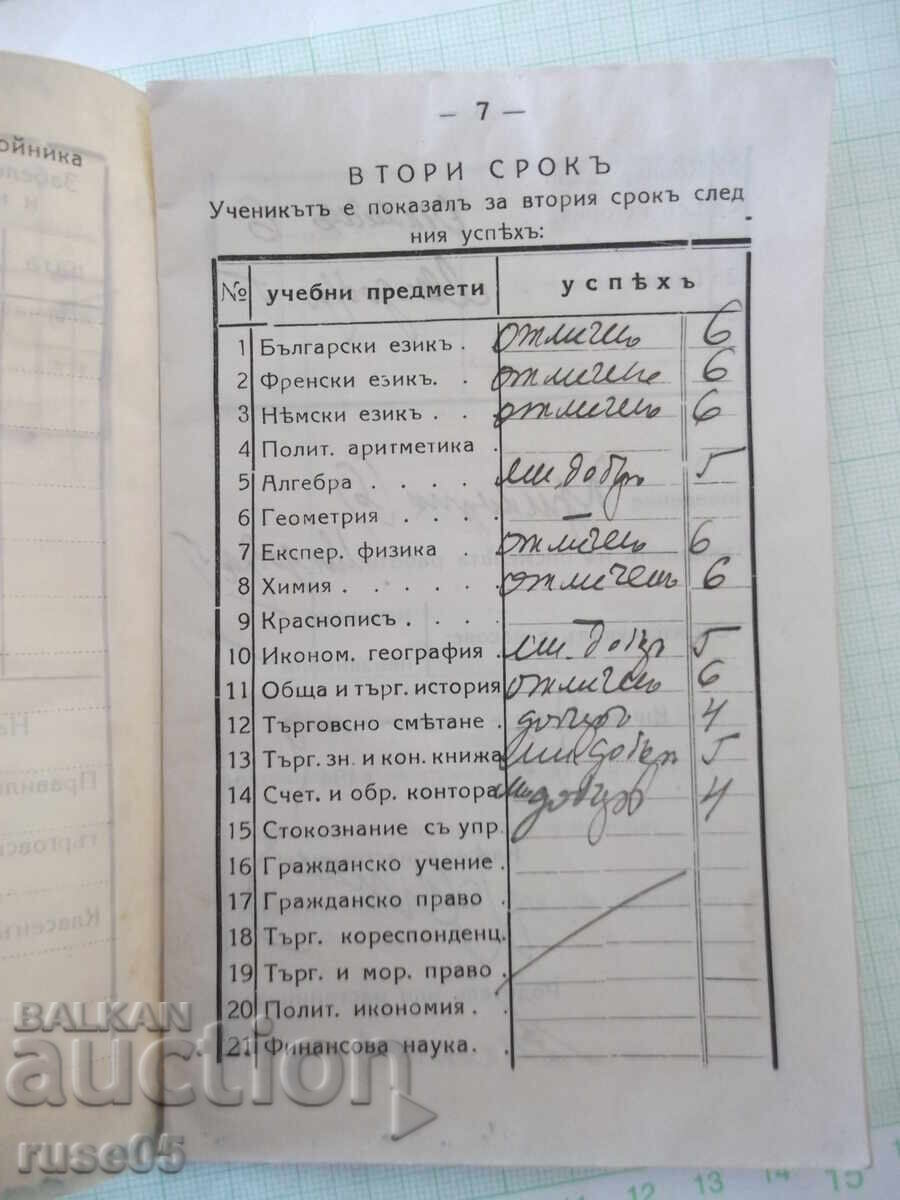 — 7 —
ВТОРИ СРОКЪ
Ученикътъ е показалъ за втория срокъ след
ния успѣхъ:
№ учебни предмети успѣхъ
1 Български езикъ . отличенъ 6
2 Френски езикъ. . отличенъ 6
3 Нѣмски езикъ . . отличенъ 6
4 Полит. аритметика .
5 Алгебра . . . . мн. добъръ 5
6 Геометрия . . . . —
7 Експер. физика . отличенъ 6
8 Химия . . . . . отличенъ 6
9 Краснописъ . . .
10 Иконом. география . мн. добъръ 5
11 Обща и търг. история отличенъ 6
12 Търговсно смѣтане . добъръ 4
13 Търг. зн. и кон. книжа мн. добъръ 5
14 Счет. и обр. контора добъръ 4
15 Стокознание съ упр.
16 Гражданско учение .
17 Гражданско право .
18 Търг. кореспонденц.
19 Търг. и мор. право .
20 Полит. икономия .
21 Финансова наука. .
ойника
Забеле
и н
дата
На
Правило
търговск
Класенъ
BALKAN
auction
ruse05
12 13 14 15